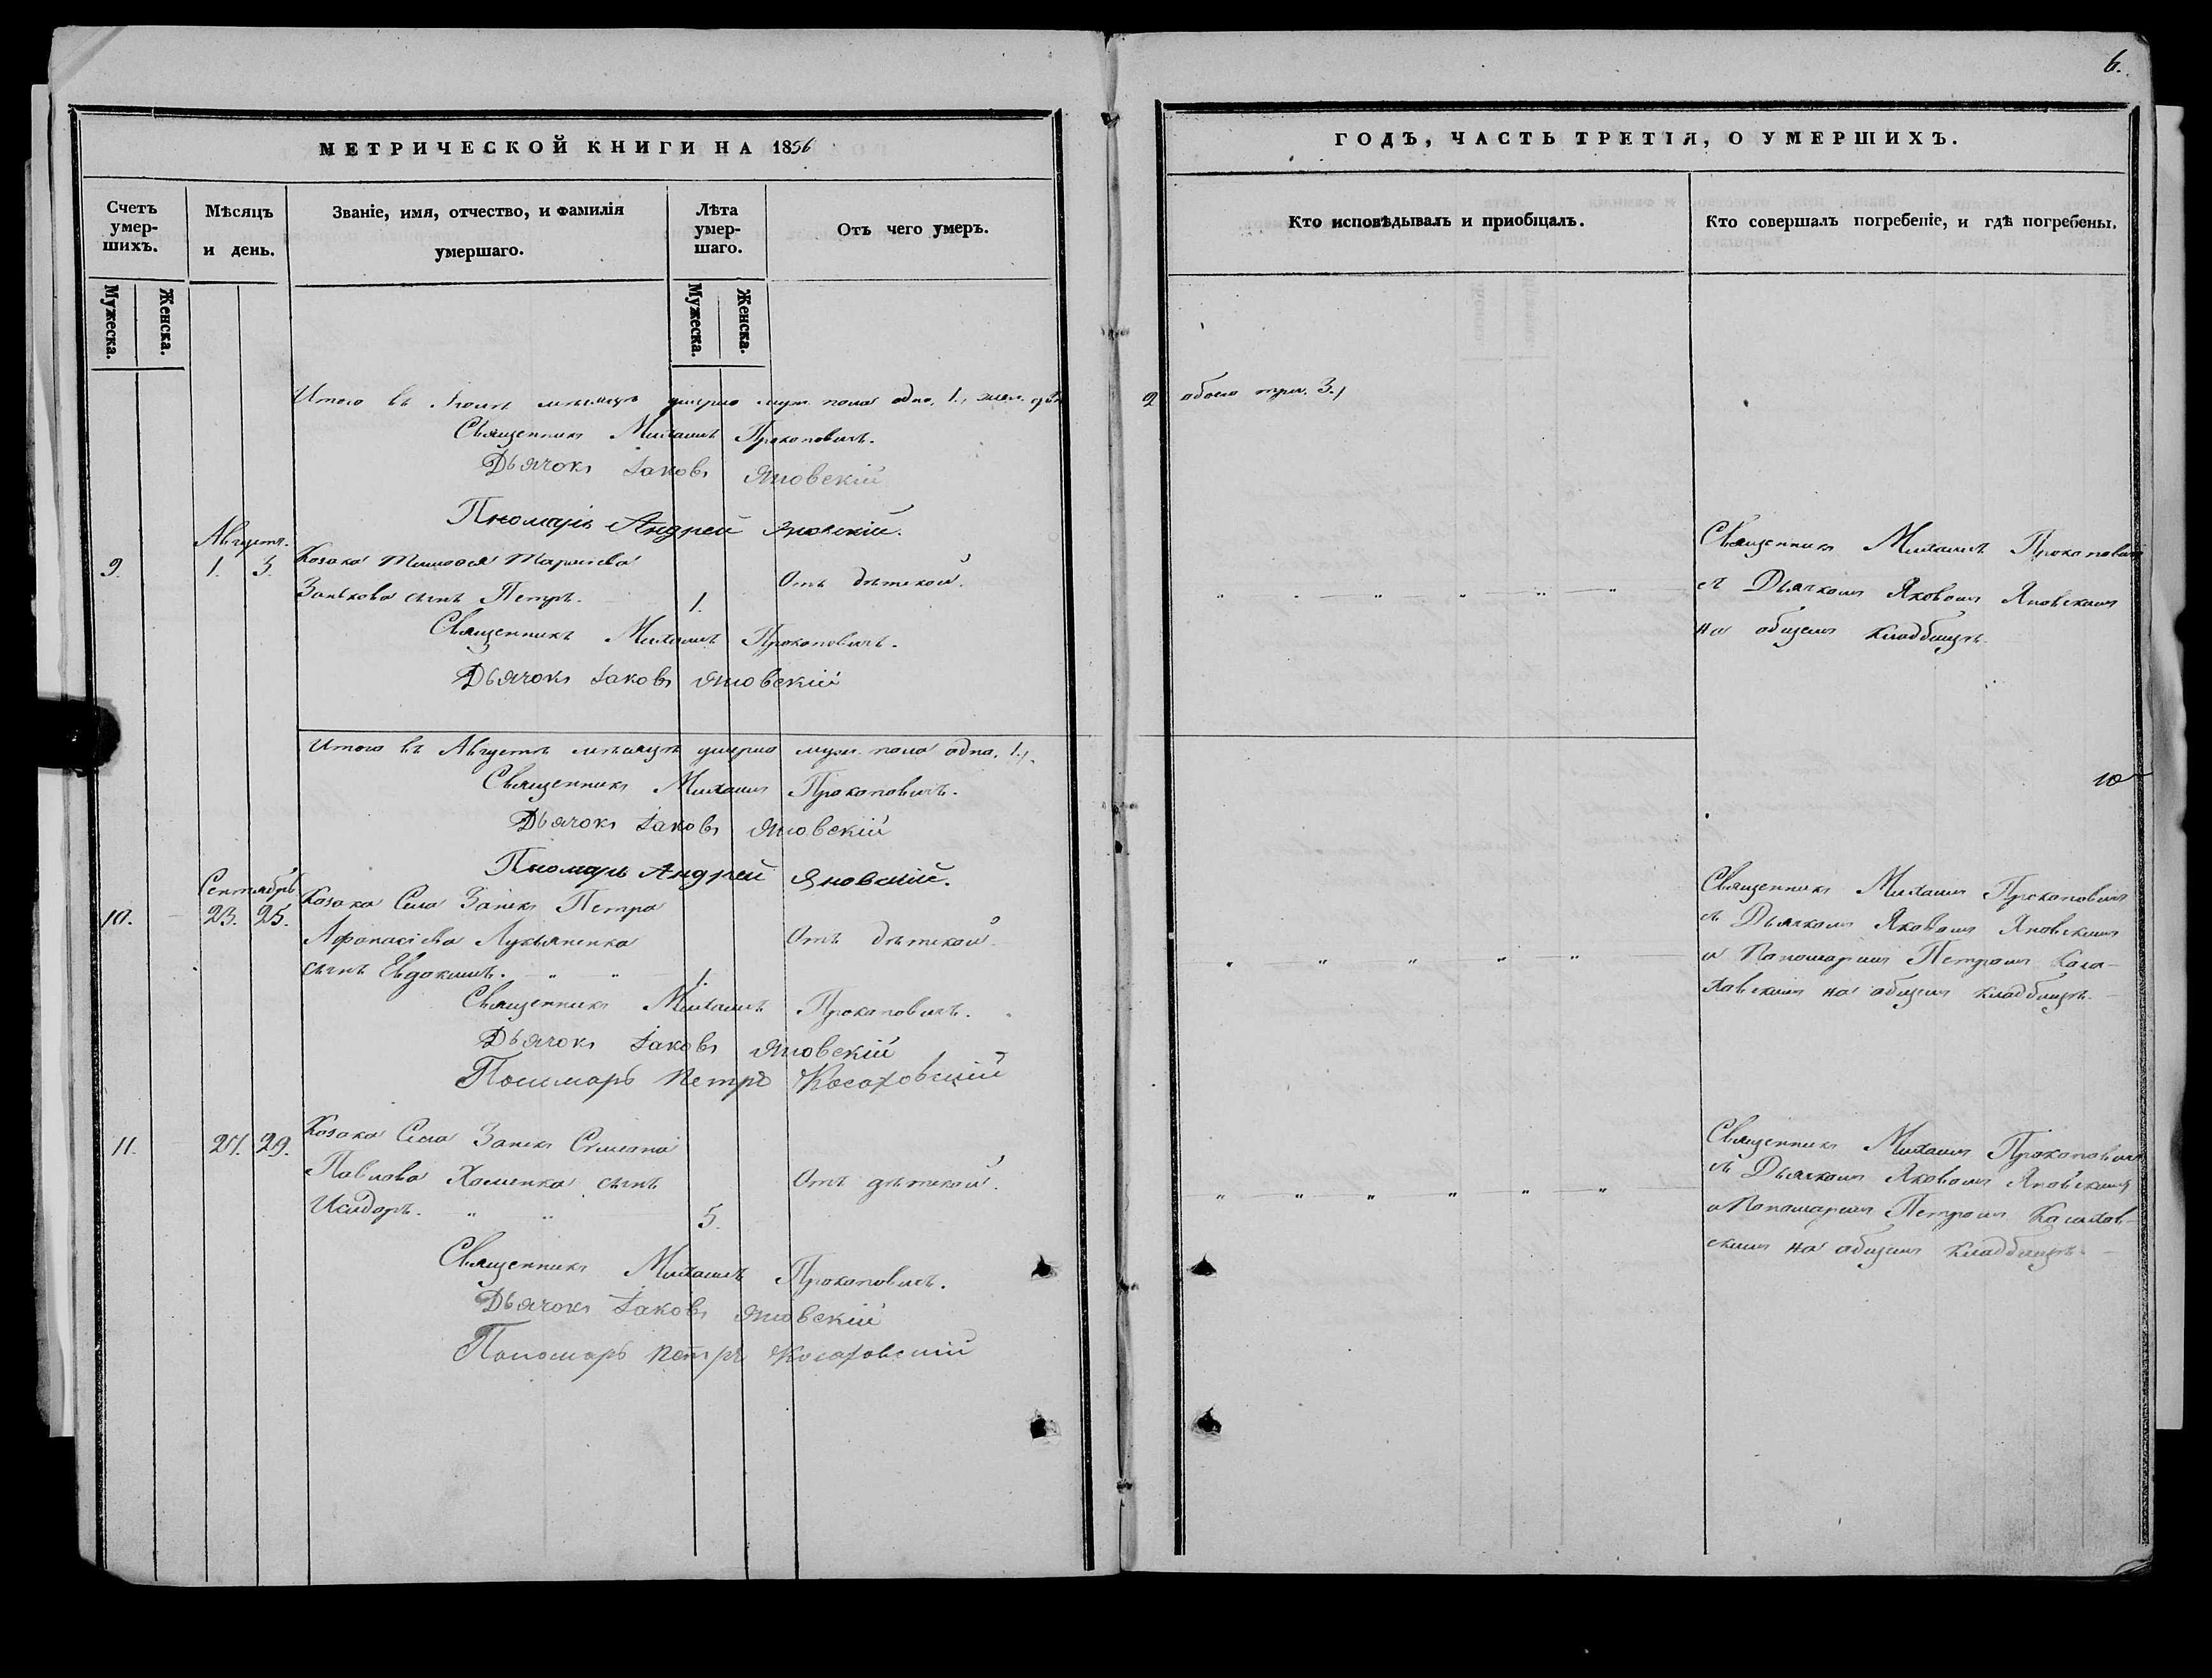 6.
МЕТРИЧЕСКОЙ КНИГИ НА 1856
ГОДЪ, ЧАСТЬ ТРЕТІЯ, О УМЕРШИХЪ.
Счетъ умер-шихъ.
Мужеска.
Женска.
Мѣсяцъ и день.
Званіе, имя, отчество, и фамилія умершаго.
Лѣта умер-шаго.
Мужеска.
Женска.
Отъ чего умеръ.
Кто исповѣдывалъ и пріобщалъ.
Кто совершалъ погребеніе, и гдѣ погребены.
Итого въ мѣсяцѣ умерло муж. пола одно, 1., жен. два
2 обоего три. 3.
Священникъ Михаилъ Прокоповичъ.
Дьячокъ Іаковъ Яновскій
Пномарь Андрей Яновскій.
Августъ.
9. 1. 3. Козака Тимофея Тарасіева
Занькова сынъ Петръ. 1. Отъ дѣтской.
Священникъ Михаилъ Прокоповичъ
съ Дьячкомъ Яковомъ Яновскимъ
на общемъ кладбищѣ.
Священникъ Михаилъ Прокоповичъ.
Дьячокъ Іаковъ Яновскій
Итого въ Августѣ мѣсяцѣ умерло муж. пола одно. 1.
Священникъ Михаилъ Прокоповичъ.
Дьячокъ Іаковъ Яновскій
Пномарь Андрей Яновскій.
10
Сентябрь
10. 23. 25. Козака Села Занекъ Петра
Афанасіева Лукьяненка Отъ дѣтской.
сынъ Евдокимъ. 1.
Священникъ Михаилъ Прокоповичъ
съ Дьячкомъ Яковомъ Яновскимъ
и Пономаремъ Петромъ Коса-
ховскимъ на общемъ кладбищѣ.
Священникъ Михаилъ Прокоповичъ.
Дьячокъ Іаковъ Яновскій
Пономарь Петръ Косаховскій
11. 27. 29. Козака Села Занекъ Стефана
Павлова Хоменка сынъ Отъ дѣтской.
Исидоръ. 5.
Священникъ Михаилъ Прокоповичъ
съ Дьячкомъ Яковомъ Яновскимъ
и Пономаремъ Петромъ Косахов-
скимъ на общемъ кладбищѣ
Священникъ Михаилъ Прокоповичъ.
Дьячокъ Іаковъ Яновскій
Пономарь Петръ Косаховскій